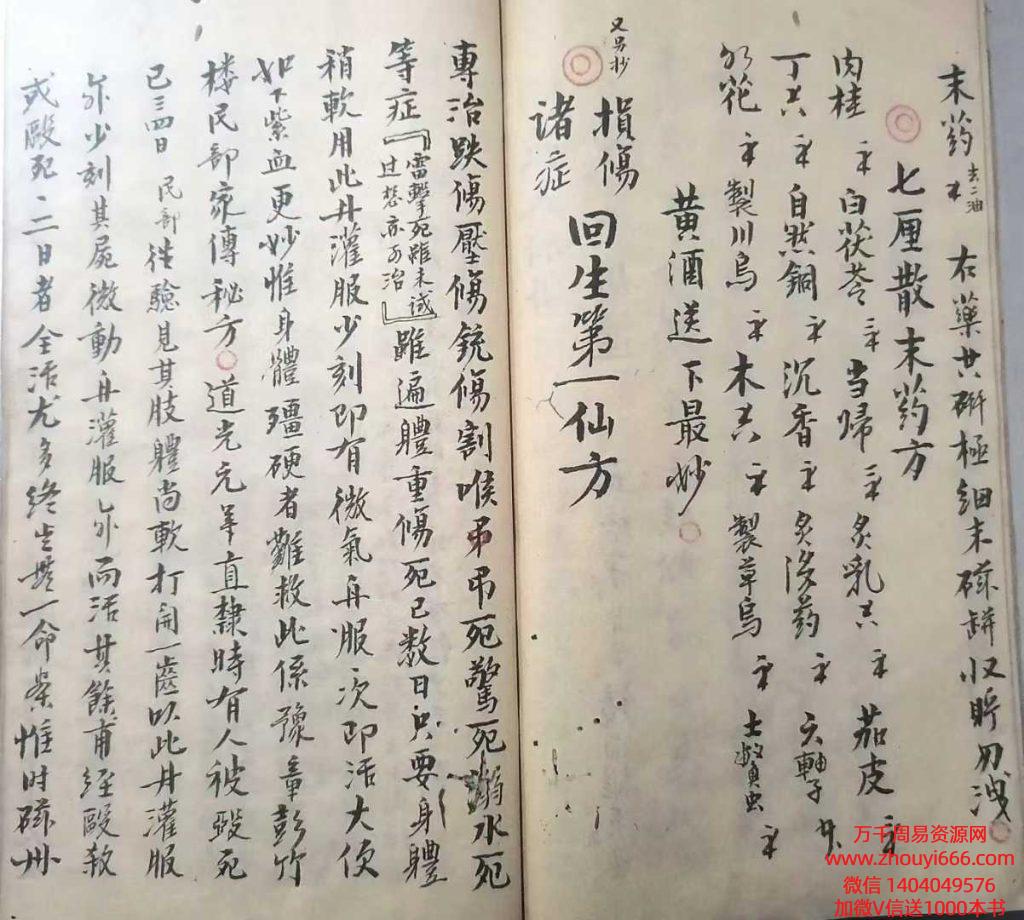 末药 去二油 右藥共研極細末磁缾收貯勿洩
七厘散末药方
肉桂 白茯苓 当歸 炙乳香 茄皮
丁香 自然銅 沉香 炙没药 六軸子
紅花 製川烏 木香 製草烏 土鱉虫
黄酒送下最妙
又另抄
損傷
諸症
回生第一仙方
專治跌傷壓傷銃傷割喉弔死驚死溺水死
等症『雷擊死雖未試
过想亦可治』雖遍體重傷死已数日只要身體
稍軟用此丹灌服少刻即有微氣再服次即活大便
如下紫血更妙惟身體殭硬者難救此係豫章彭竹
楼民部家傳秘方道光元年直隸時有人被毆死
已三四日民部往驗見其肢體尚軟打開一齒以此丹灌服
尔少刻其屍微動再灌服尔而活其餘甫經毆殺
或毆死一二日者全活尤多終生無一命案惟时磁州
万千周易资源网
www.zhouyi666.com
微信 1404049576
加微V信送1000本书